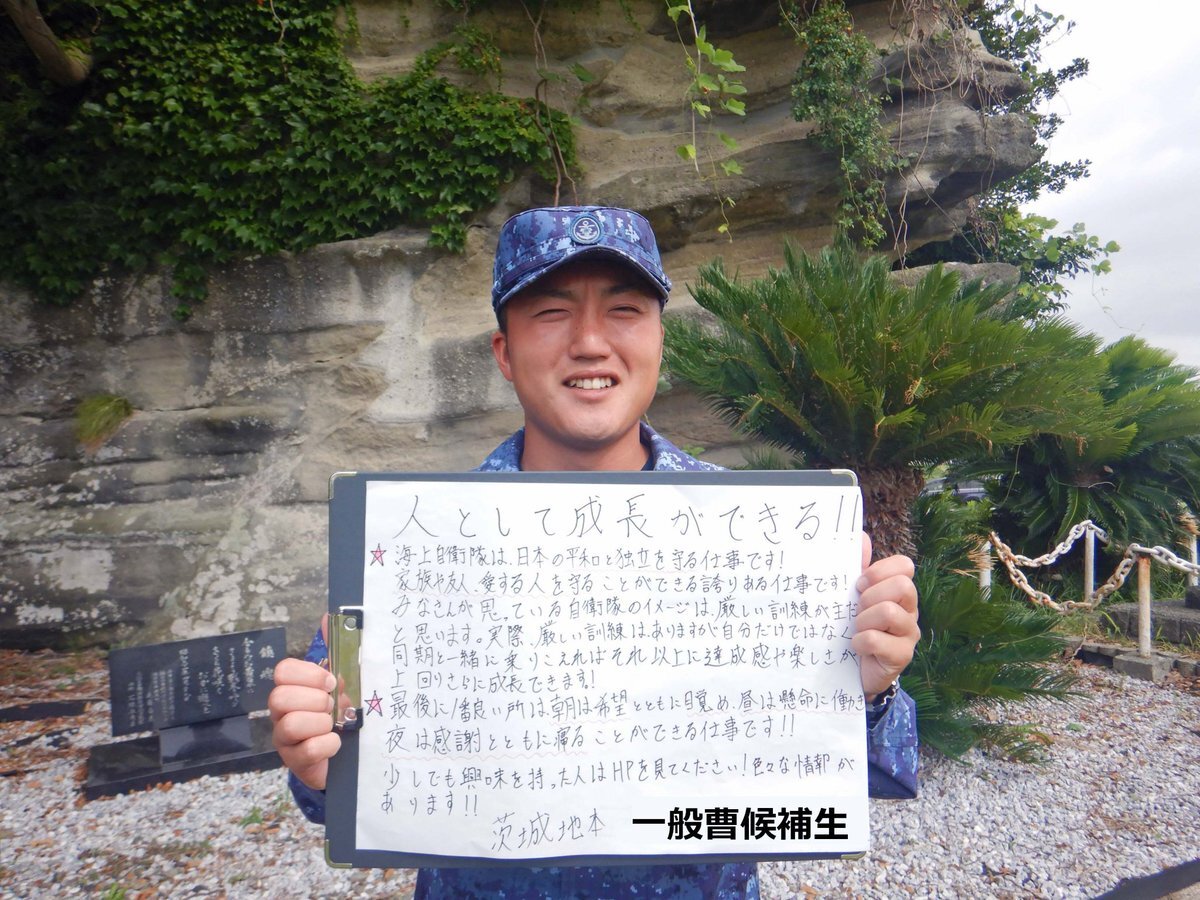 人として成長ができる!!
☆海上自衛隊は、日本の平和と独立を守る仕事です!
家族や友人、愛する人を守ることができる誇りある仕事です!
みなさんが思っている自衛隊のイメージは、厳しい訓練が主だ
と思います。実際、厳しい訓練はありますが自分だけではなく
同期と一緒に乗りこえればそれ以上に達成感や楽しさが
上回りさらに成長できます!
☆最後に1番良い所は朝は希望とともに目覚め、昼は懸命に働き
夜は感謝とともに寝ることができる仕事です!!
少しでも興味を持った人はHPを見てください!色々な情報が
あります!!
茨城地本
一般曹候補生